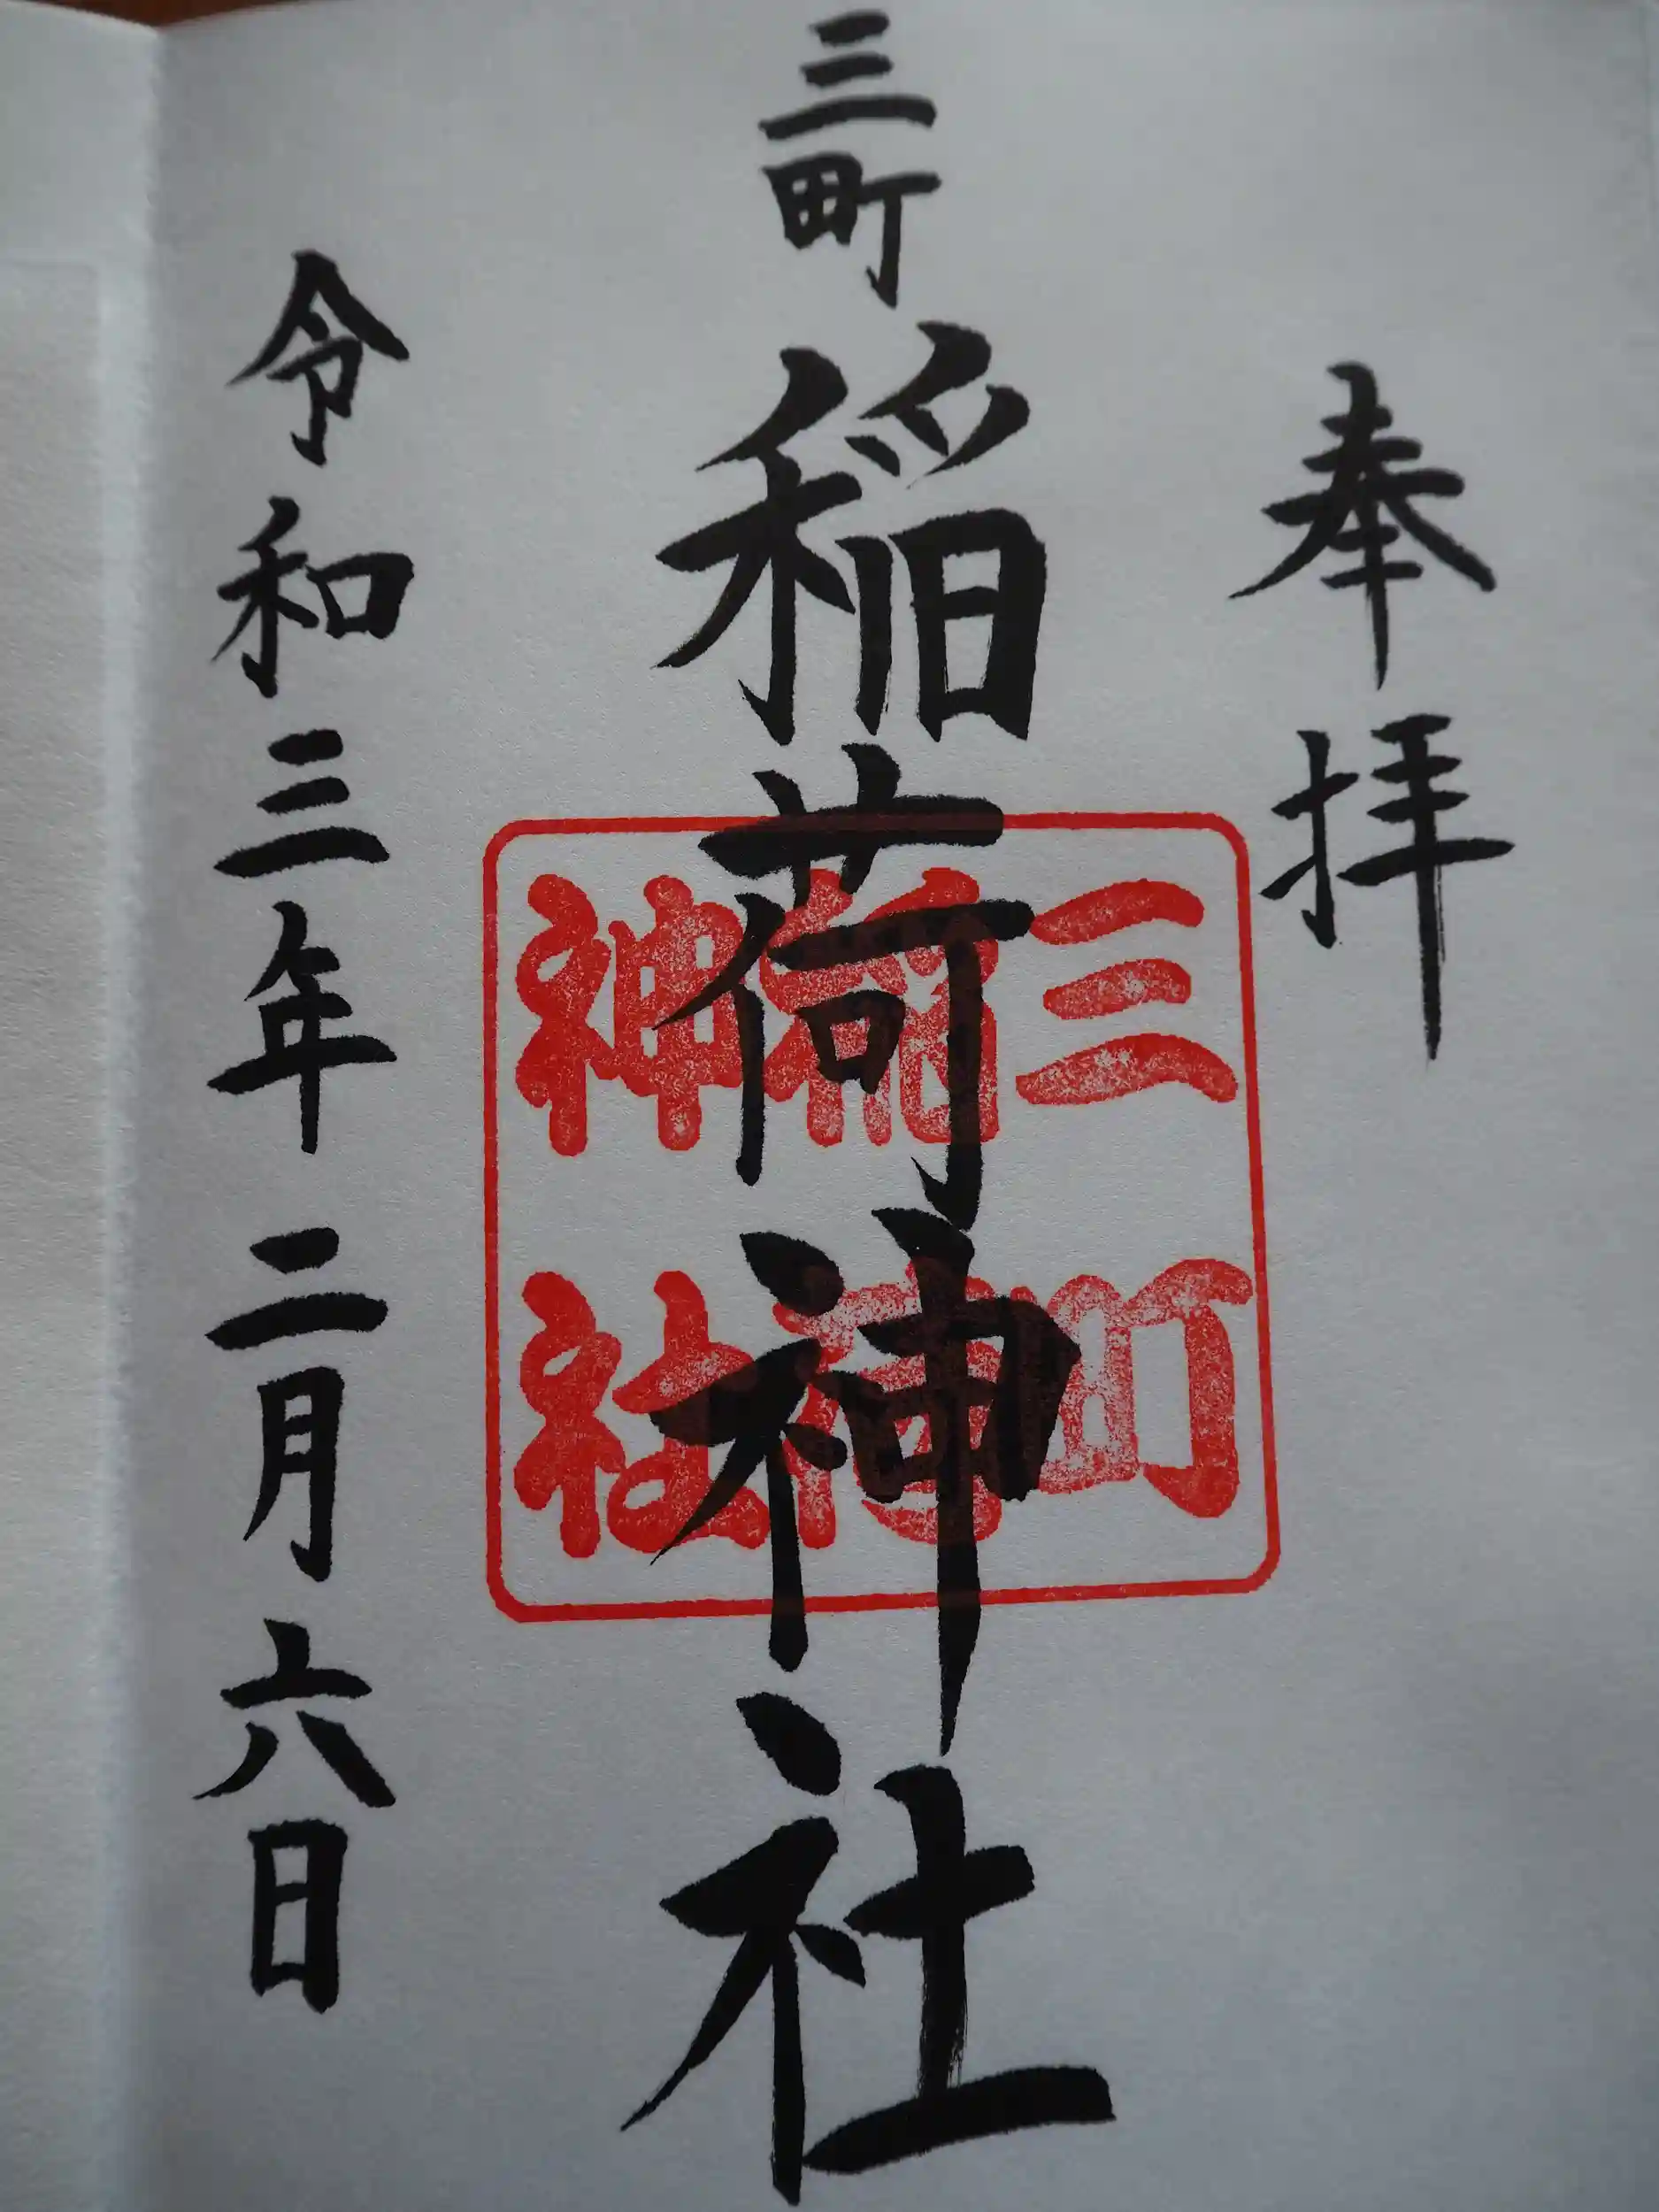 奉拝
三町稲荷神社
三町
稲荷
神社
令和三年二月六日